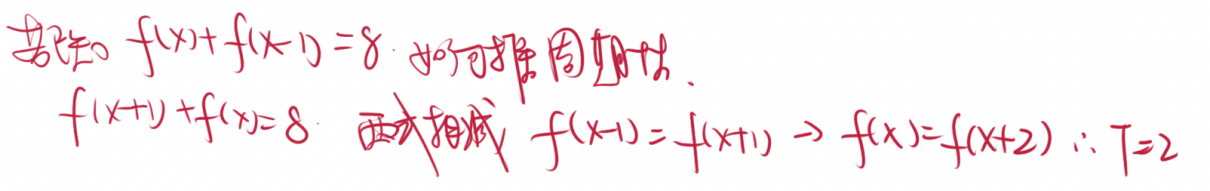 若已知 f(x)+f(x-1)=8. 如何推周期性.
f(x+1)+f(x)=8. 两式相减 f(x-1)=f(x+1) → f(x)=f(x+2) ∴ T=2